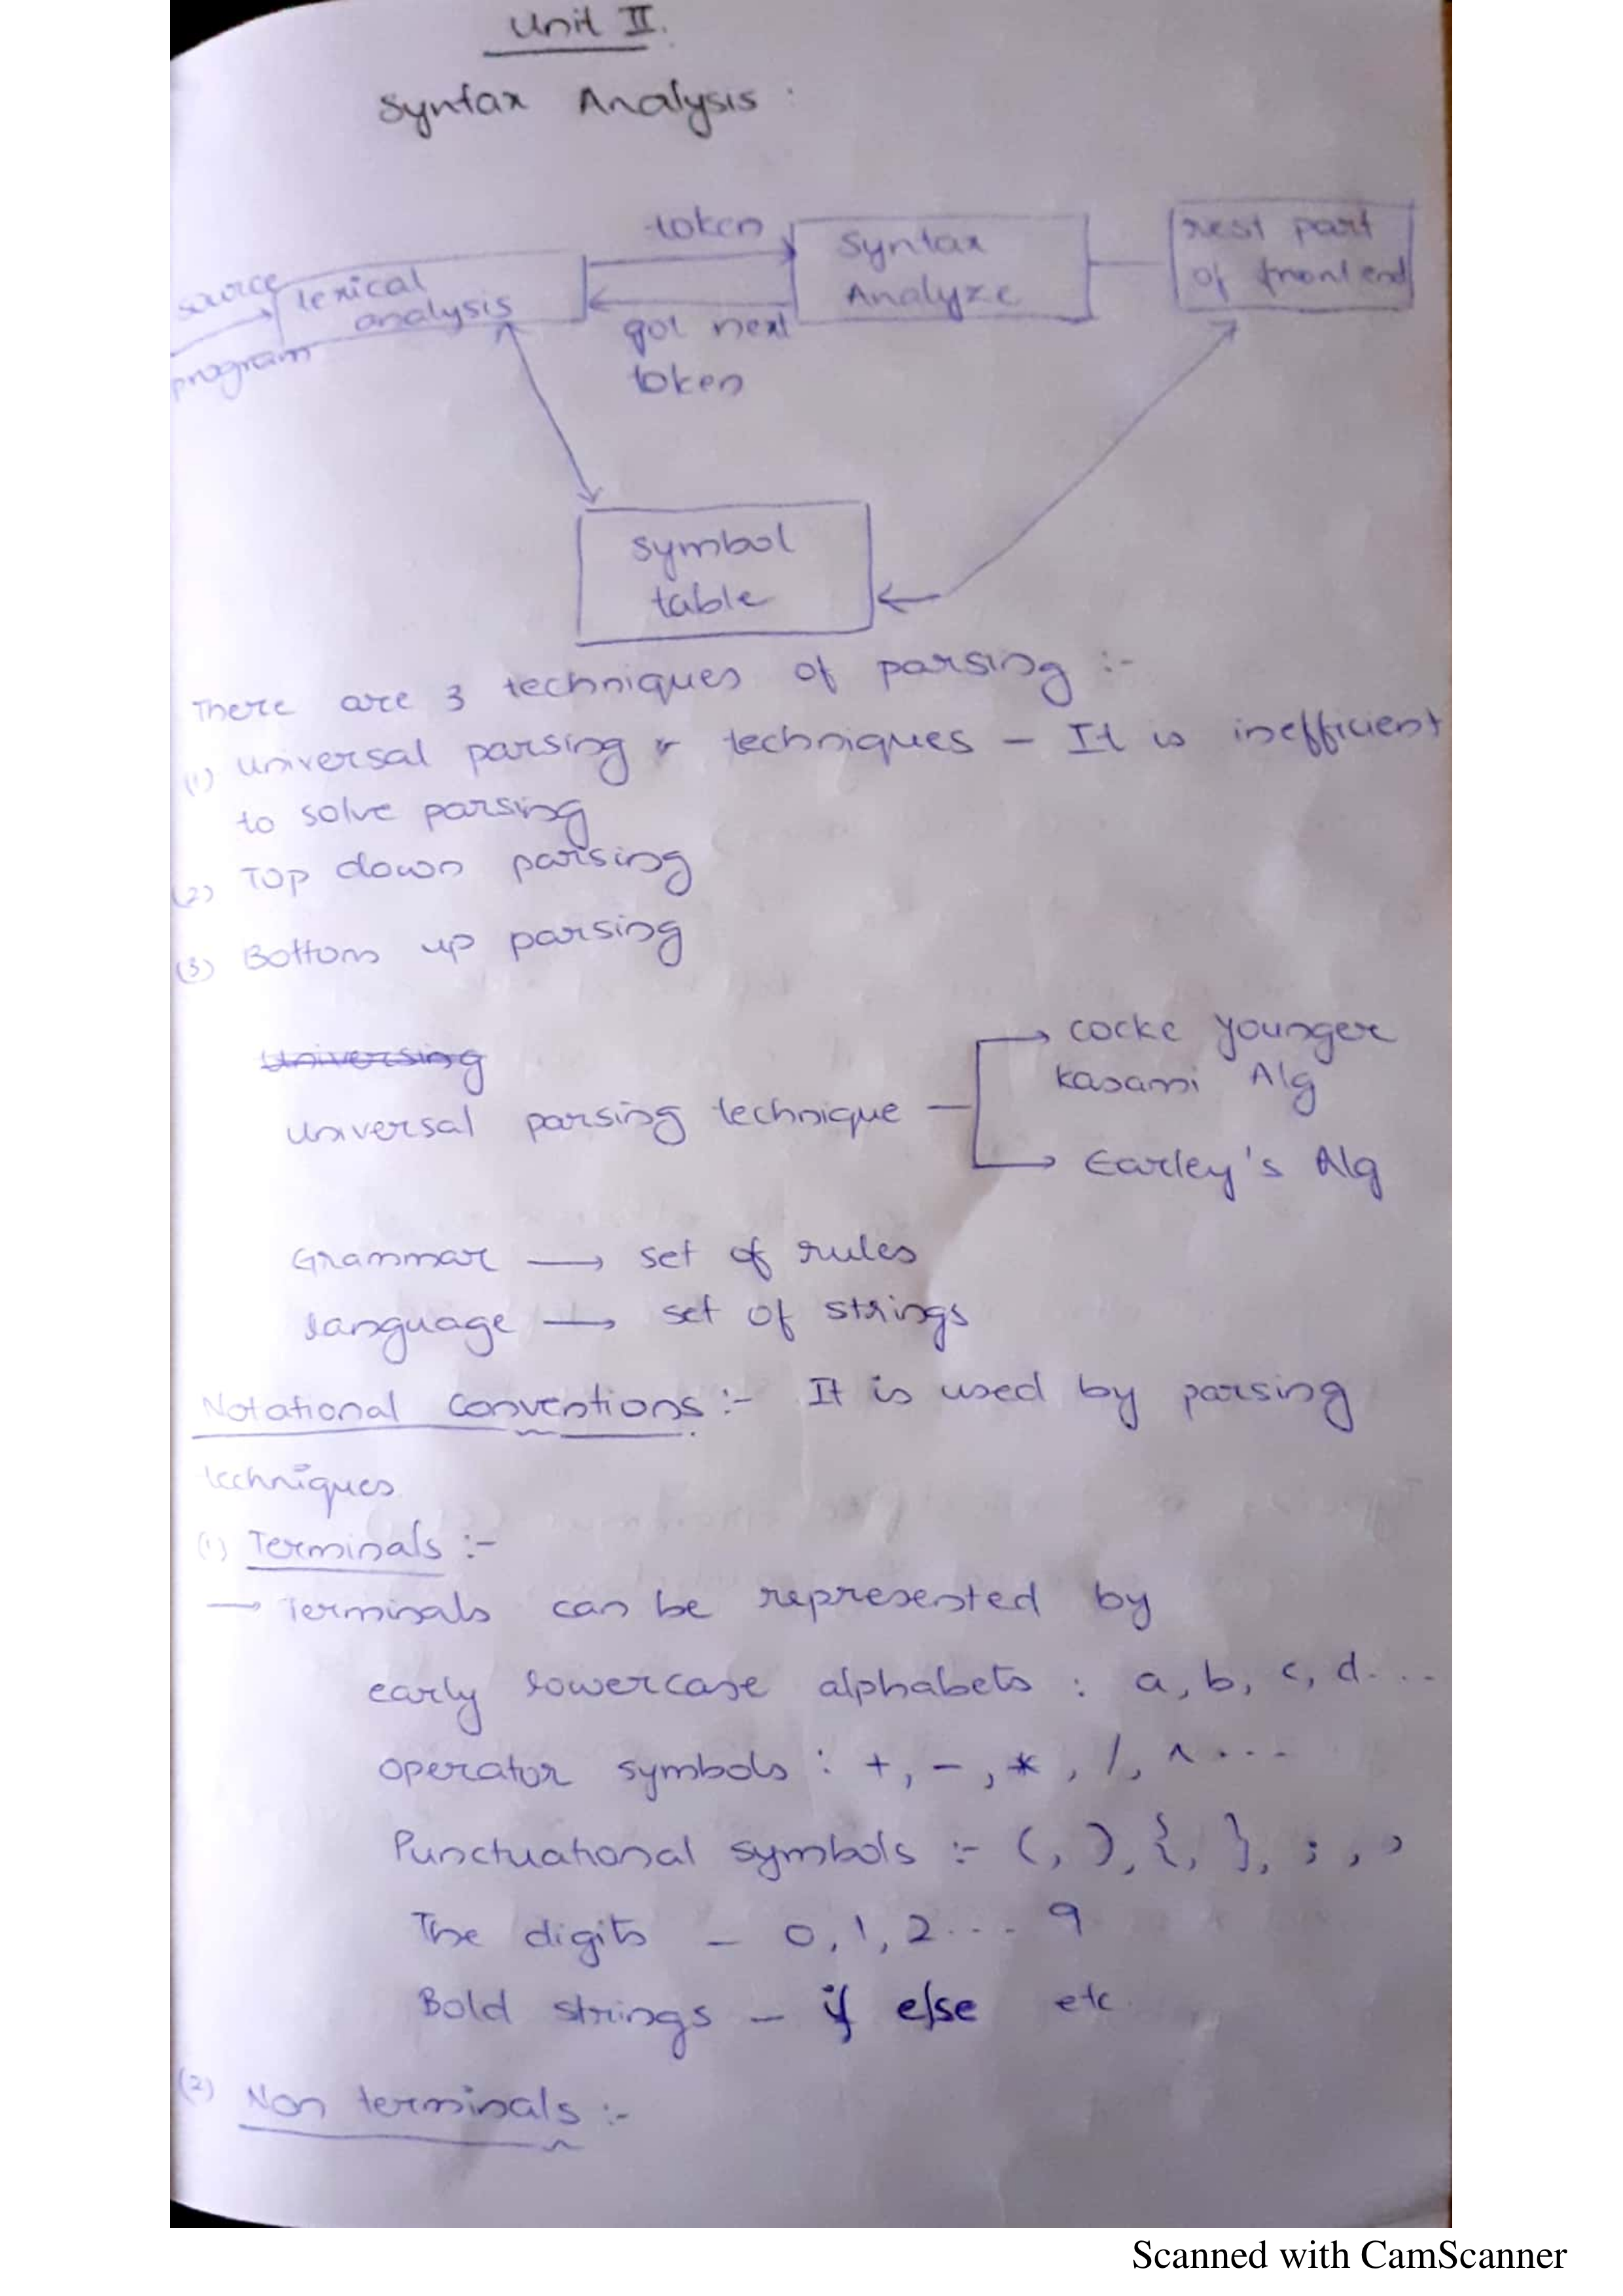 Unit II.
Syntax Analysis :
source
program
lexical
analysis
token
got next
token
Syntax
Analyze
rest part
of front end
symbol
table
There are 3 techniques of parsing :-
(1) Universal parsing techniques - It is inefficient
to solve parsing
(2) Top down parsing
(3) Bottom up parsing
Universing
Universal parsing technique
→ cocke younger
kasami Alg
→ Earley's Alg
Grammar → set of rules
language → set of strings
Notational conventions :- It is used by parsing
techniques
(1) Terminals :-
→ Terminals can be represented by
early lowercase alphabets : a, b, c, d....
operator symbols : +, -, *, /, ^ ....
Punctuational symbols :- (, ), {, }, ; , ,
The digits - 0, 1, 2 .... 9
Bold strings - if else etc.
(2) Non terminals :-
Scanned with CamScanner